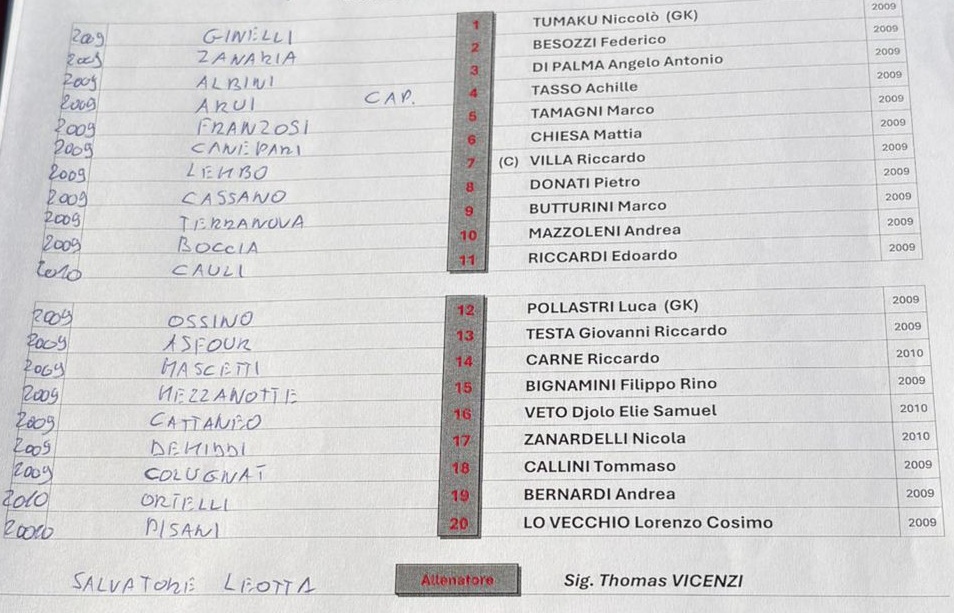 2009 GINELLI 1 TUMAKU Niccolò (GK) 2009
2009 ZANARIA 2 BESOZZI Federico 2009
2009 ALBINI 3 DI PALMA Angelo Antonio 2009
2009 ARUI CAP. 4 TASSO Achille 2009
2009 FRANZOSI 5 TAMAGNI Marco 2009
2009 CANEPARI 6 CHIESA Mattia 2009
2009 LEMBO 7 (C) VILLA Riccardo 2009
2009 CASSANO 8 DONATI Pietro 2009
2009 TERRANOVA 9 BUTTURINI Marco 2009
2009 BOCCIA 10 MAZZOLENI Andrea 2009
2010 CAULI 11 RICCARDI Edoardo 2009
2009 OSSINO 12 POLLASTRI Luca (GK) 2009
2009 ASFOUR 13 TESTA Giovanni Riccardo 2009
2009 MASCETTI 14 CARNE Riccardo 2010
2009 MEZZANOTTE 15 BIGNAMINI Filippo Rino 2009
2009 CATTANEO 16 VETO Djolo Elie Samuel 2010
2009 17 ZANARDELLI Nicola 2010
2009 COLUGNAT 18 CALLINI Tommaso 2009
2010 ORTELLI 19 BERNARDI Andrea 2009
PISANI 20 LO VECCHIO Lorenzo Cosimo 2009
SALVATORE LEOTTA Allenatore Sig. Thomas VICENZI